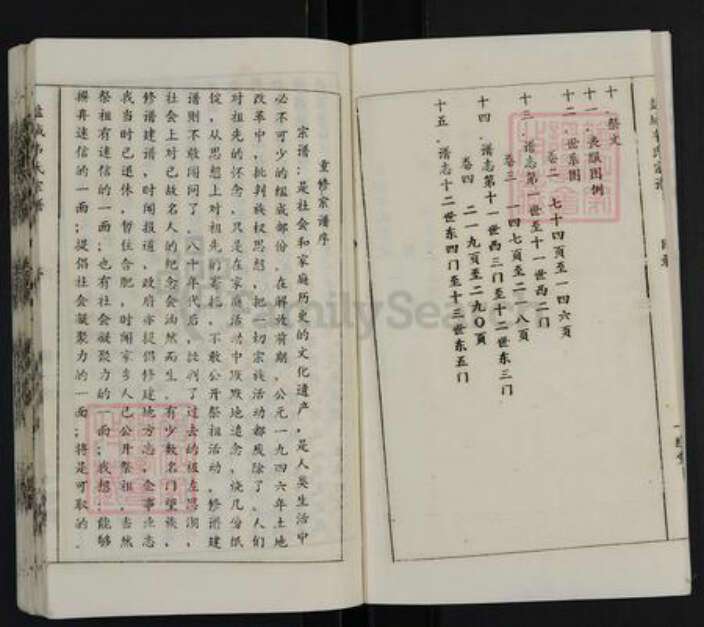 十、祭文
十一、丧服图例
十二、世系图
卷二 七十四页至一四六页
十三、谱志第一世至十一世西二门
卷三 一四七页至二一八页
十四、谱志第十一世西三门至十二世东三门
卷四 二一九页至二九〇页
十五、谱志十二世东四门至十三世东五门
重修宗谱序
宗谱：是社会和家庭历史的文化遗产，是人类生活中
必不可少的组成部份，在解放前期，公元一九四六年土地
改革中，批判族权思想，把一切宗族活动都废除了。人们
对祖先的怀念，只是在家庭活动中默默地追念，烧几份纸
锭，从思想上对祖先的寄托，不敢公开祭祖活动，修谱建
谱则不敢闻问了。八十年代后，批判了过去的极左思潮，
社会上对已故名人的纪念会油然而生，有少数名门望族，
修谱建谱，时闻报道，政府亦提倡修建地方志，企事业志
我当时已退休，暂住合肥，时闻家乡人已公开祭祖，当然
祭祖有迷信的一面；也有社会凝聚力的一面；我想，能够
摒弃迷信的一面；提倡社会凝聚力的一面；将是可取的。
FamilySearch